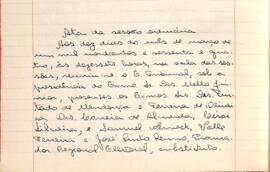 Ata da sessão ordinária
Aos dez dias do mês de março de
um mil novecentos e sessenta e quatro,
às dezessete horas, na sala das ses-
sões, reuniu-se o E. Tribunal, sob a
presidência do Exmo Sr. Des. Mello Jú-
nior, presentes os Exmos Srs. Des. Fur-
tado de Mendonça e Ferreira de Oliveira
Drs. Correia de Almeida, César
Silveira, e Samuel Valle
Ferreira e José Pinto Renó, Procura-
dor Regional Eleitoral, substituto.